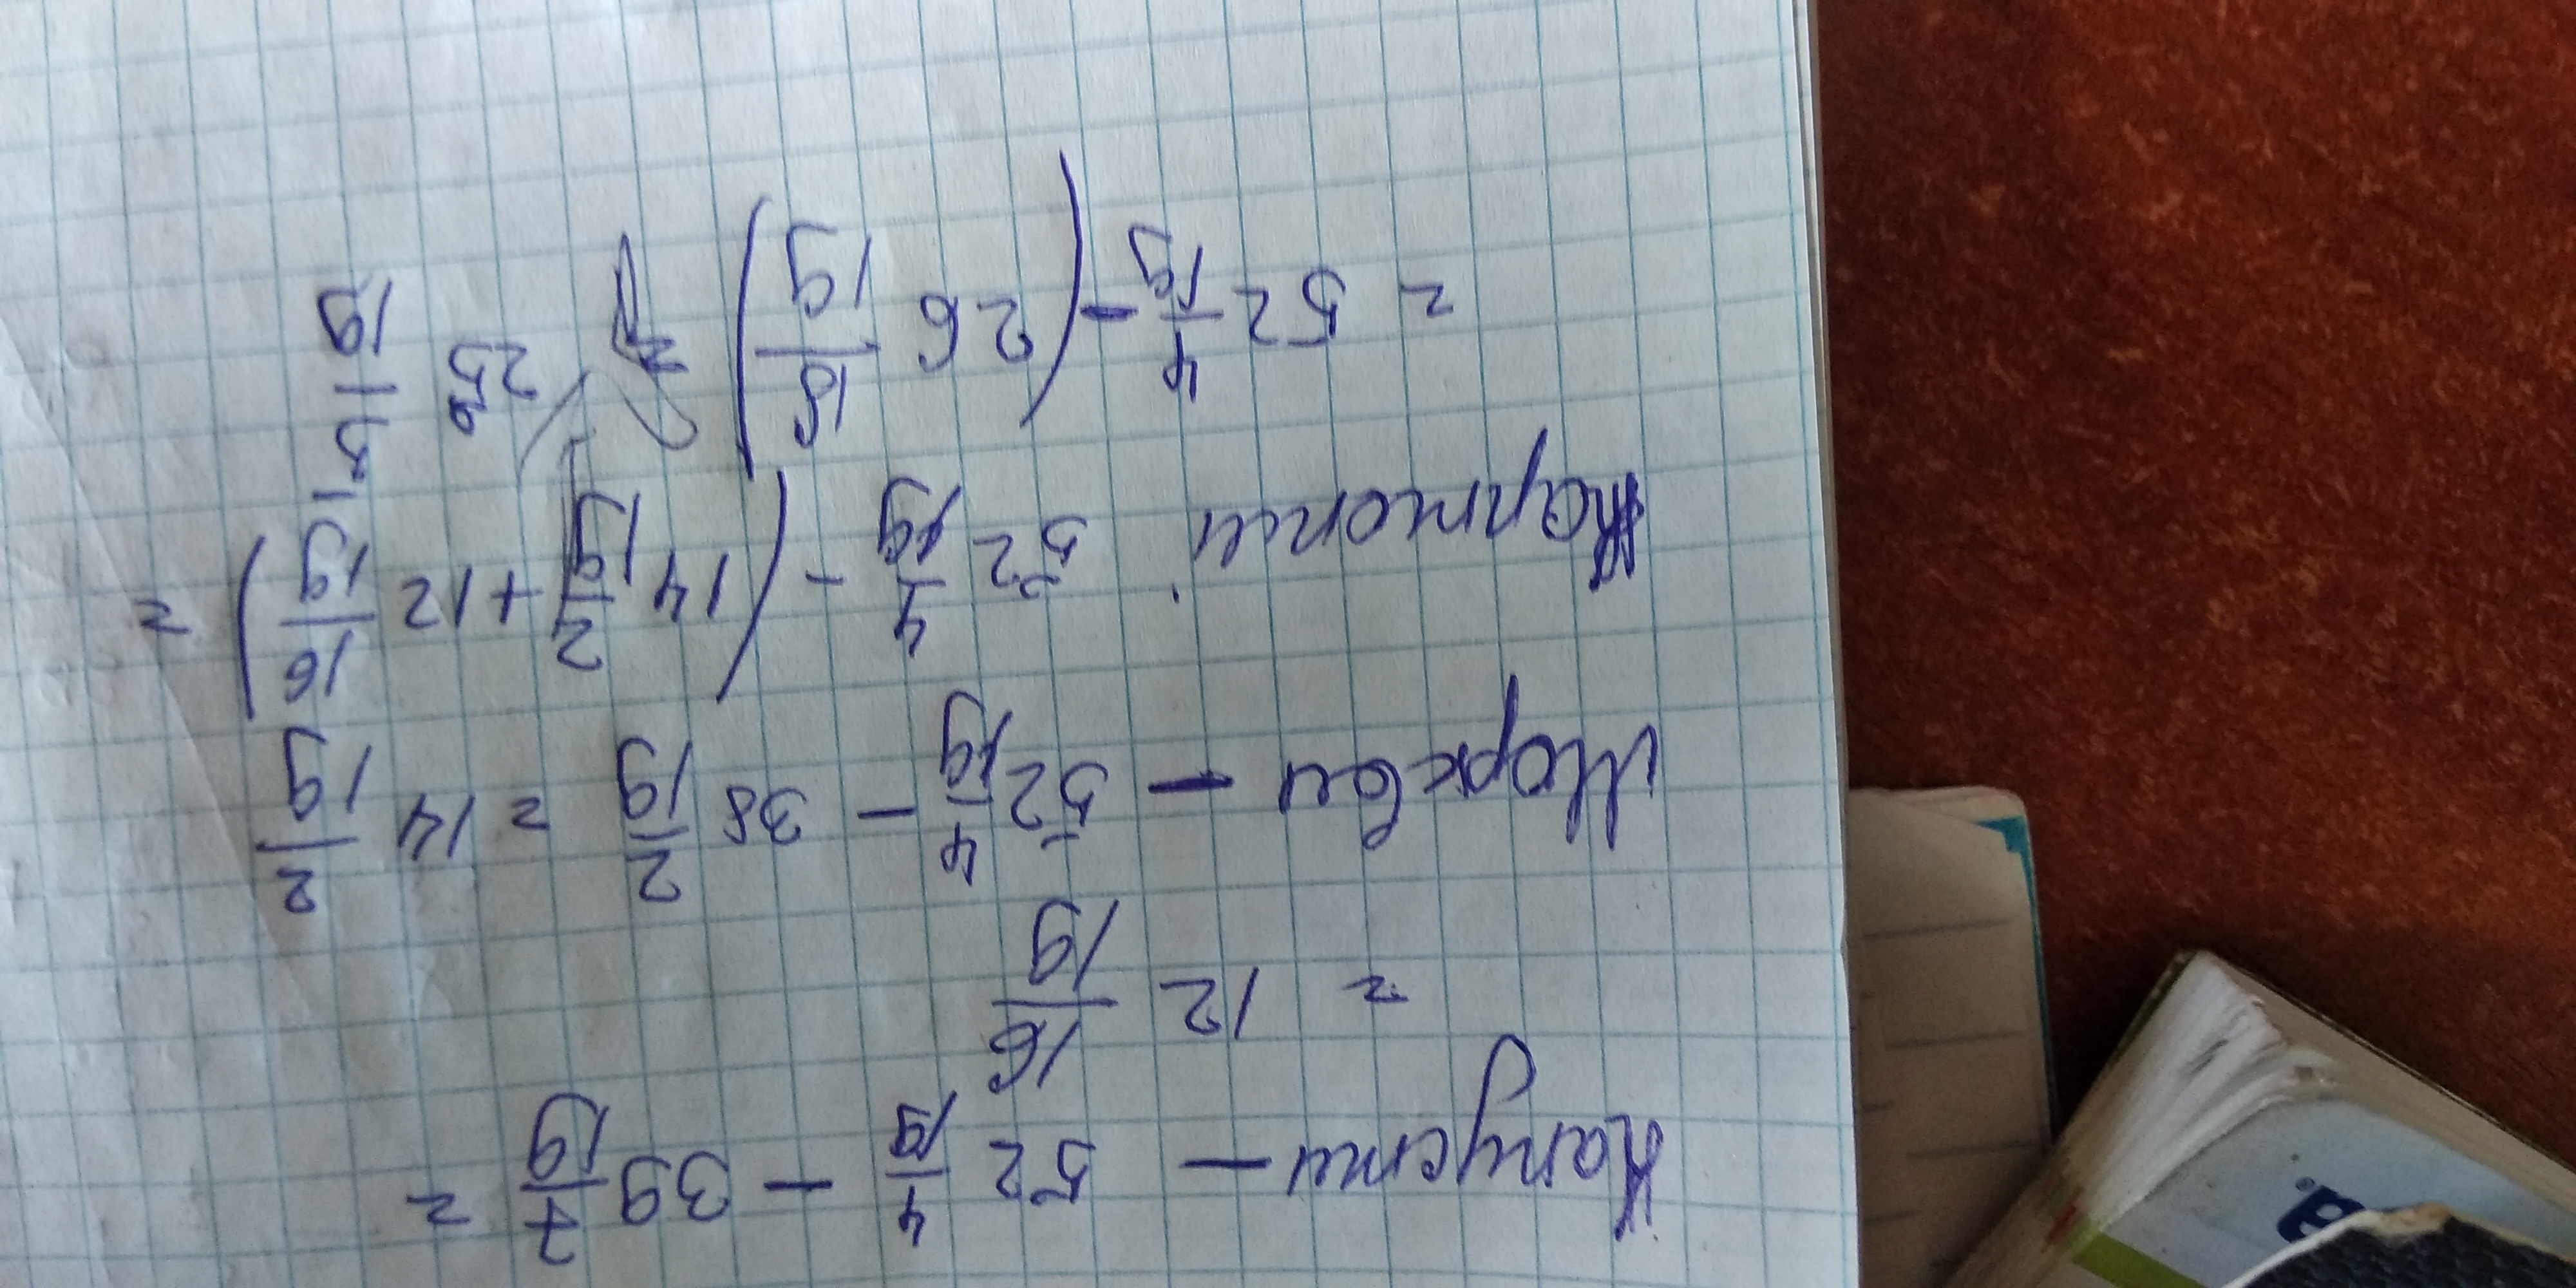 Капусти — 52 4/19 – 39 7/19 =
= 12 16/19
Моркви — 52 4/19 – 38 2/19 = 14 2/19
Картопи. 52 4/19 – (14 2/19 + 12 16/19) =
= 52 4/19 – (26 18/19) = 25 5/19